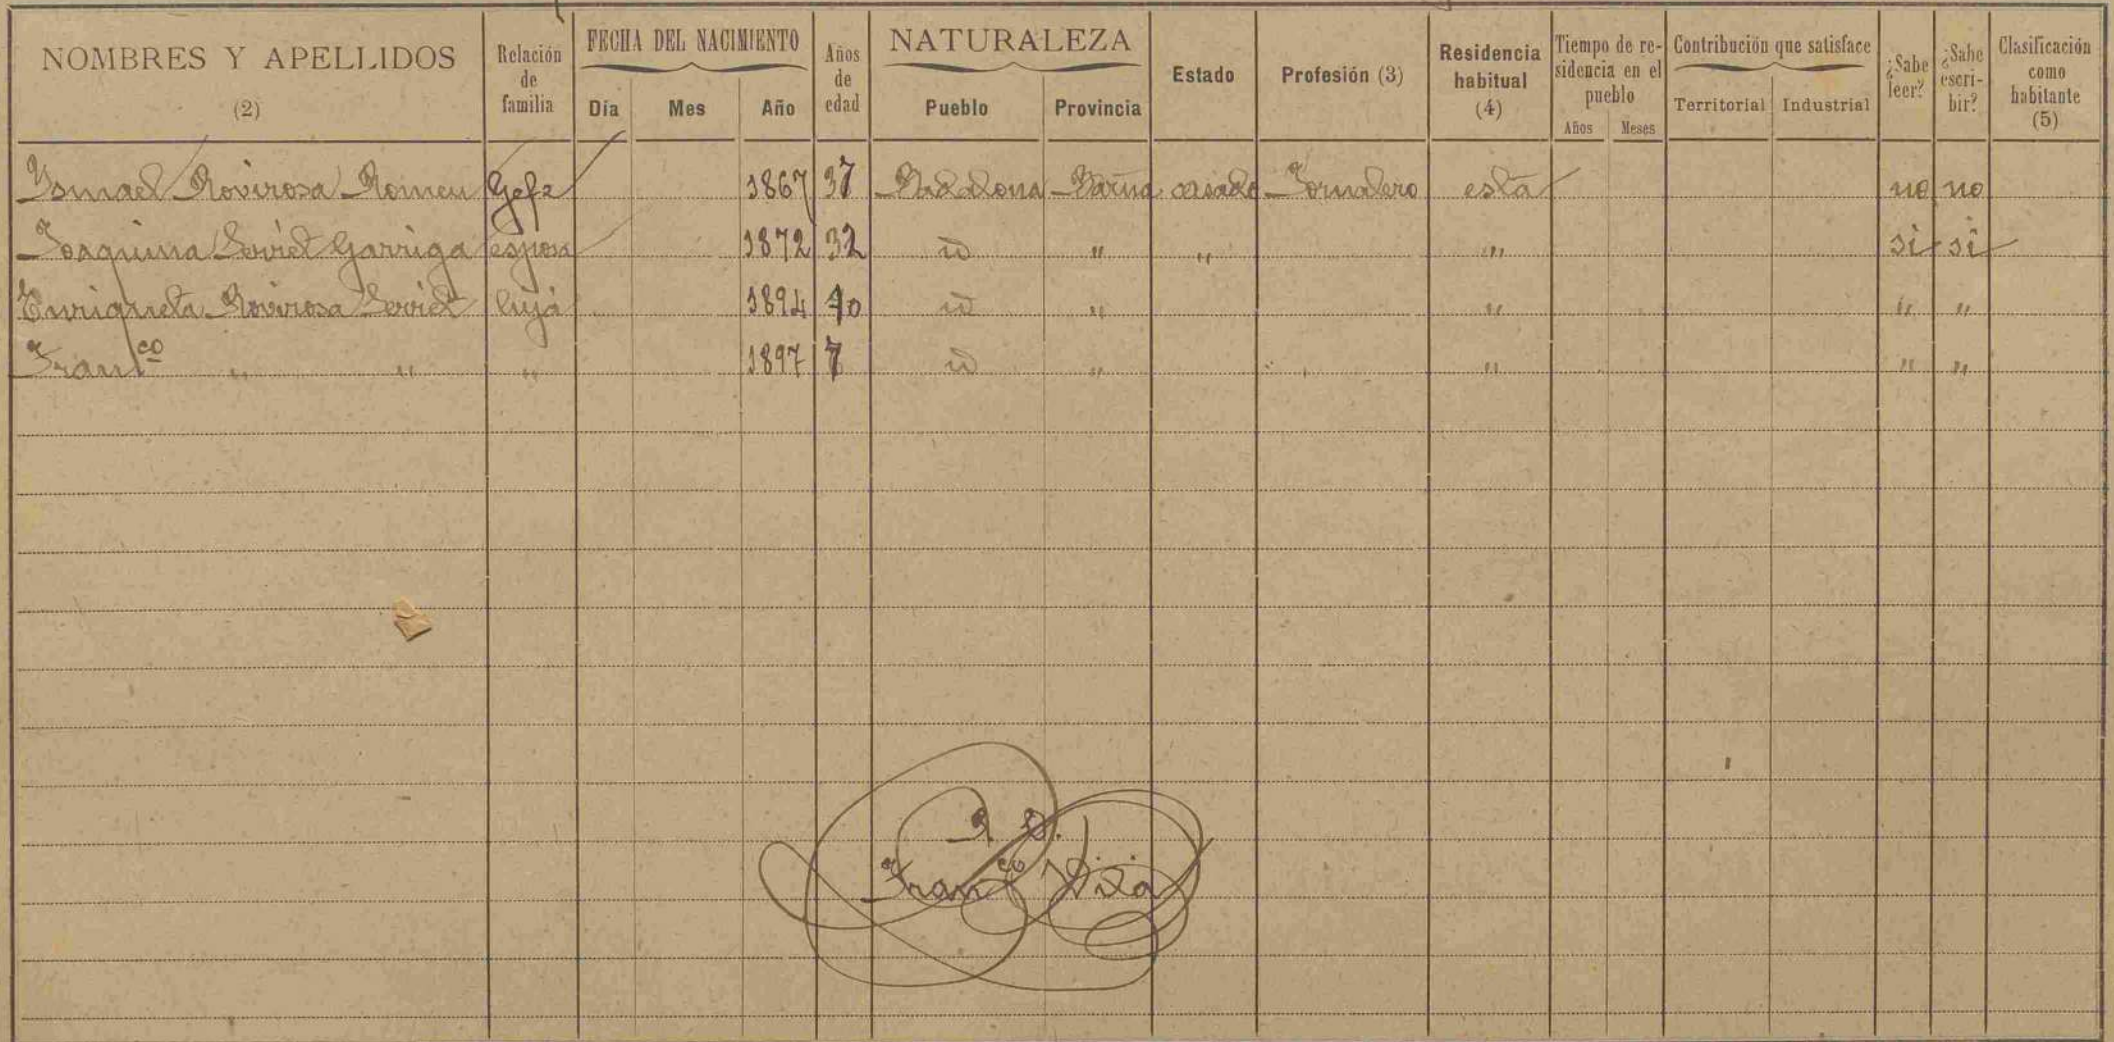 NOMBRES Y APELLIDOS (2) Relación de familia FECHA DEL NACIMIENTO Día Mes Año Años de edad NATURALEZA Pueblo Provincia Estado Profesión (3) Residencia habitual (4) Tiempo de residencia en el pueblo Años Meses Contribución que satisface Territorial Industrial ¿Sabe leer? ¿Sabe escribir? Clasificación como habitante (5)
Ysmael Rovirosa Romeu Gefe 1867 37 Badalona Barna casado Jornalero esta no no
Joaquina Serviet Garriga esposa 1872 32 id " " " si si
Enriqueta Rovirosa Serviet hija 1894 10 id " " " "
Franco " " " 1897 7 id " " " "
Franco Vila